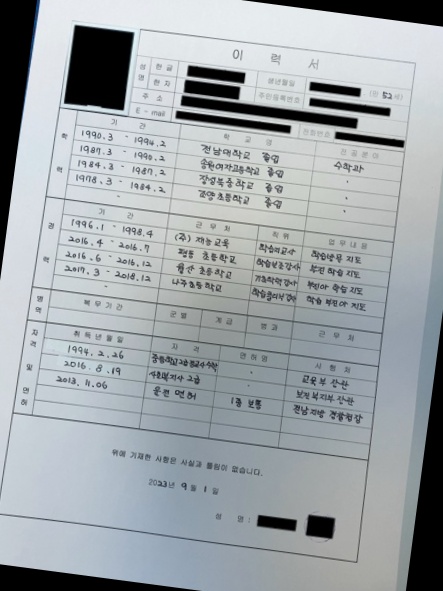 이 력 서
성 명
한 글
생년월일
(만 52세)
한 자
주민등록번호
주 소
E - mail
전화번호
학 력
기 간
학 교 명
전 공 분 야
1990.3 - 1994.2 전남대학교 졸업 수학과
1987.3 - 1990.2 송원여자고등학교 졸업
1984.3 - 1987.2 장성북중학교 졸업
1978.3 - 1984.2 졸업
경 력
기 간 근 무 처 직위 업 무 내 용
1996.1 - 1998.4 (주) 재능교육 학습지교사 학습방문 지도
2016.4 - 2016.7 초등학교 학습보조강사 부진 학습 지도
2016.6 - 2016.12 초등학교 부진아 학습 지도
2017.3 - 2018.12 초등학교 학습 부진아 지도
병 역
복 무 기 간 군 별 계 급 병 과 근 무 처
자 격 및 면 허
취 득 년 월 일 자 격 면 허 명 시 행 처
1994. 2. 26 교육부 장관
2016. 8. 19 사회복지사 2급 보건복지부 장관
2013. 11. 06 운전 면허 1종 보통 전남지방 경찰청장
위에 기재한 사항은 사실과 틀림이 없습니다.
2023년 9 월 1 일
성 명 :